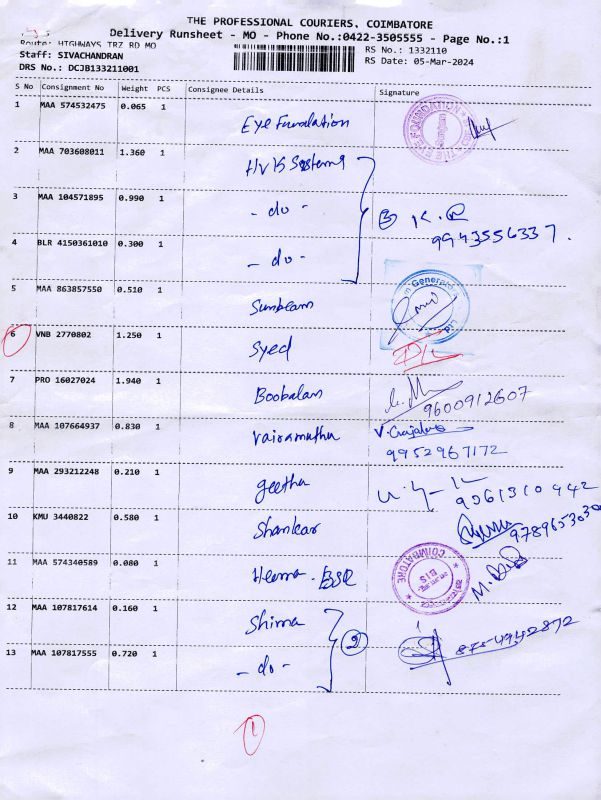 THE PROFESSIONAL COURIERS, COIMBATORE
Delivery Runsheet - MO - Phone No.:0422-3505555 - Page No.:1
Route: HIGHWAYS TRZ RD MO
RS No.: 1332110
Staff: SIVACHANDRAN
RS Date: 05-Mar-2024
DRS No.: DCJB133211001
S No Consignment No Weight PCS Consignee Details Signature
1 MAA 574532475 0.065 1 Eye Foundation
2 MAA 703608011 1.360 1 HVB Systems
3 MAA 104571895 0.990 1 - do -
K.R
9943556337.
4 BLR 4150361010 0.300 1 - do -
5 MAA 863857550 0.510 1 Sunbeam
6 VNB 2770802 1.250 1 Syed
7 PRO 16027024 1.940 1 Boobalan
9600912607
8 MAA 107664937 0.830 1 Vairamuthu
9952967172
9 MAA 293212248 0.210 1 geetha
9361310442
10 KMU 3440822 0.580 1 Shankar
11 MAA 574340589 0.080 1 Heema
COIMBATORE
BIS
12 MAA 107817614 0.160 1 Shima
2
13 MAA 107817555 0.720 1 - do -
1